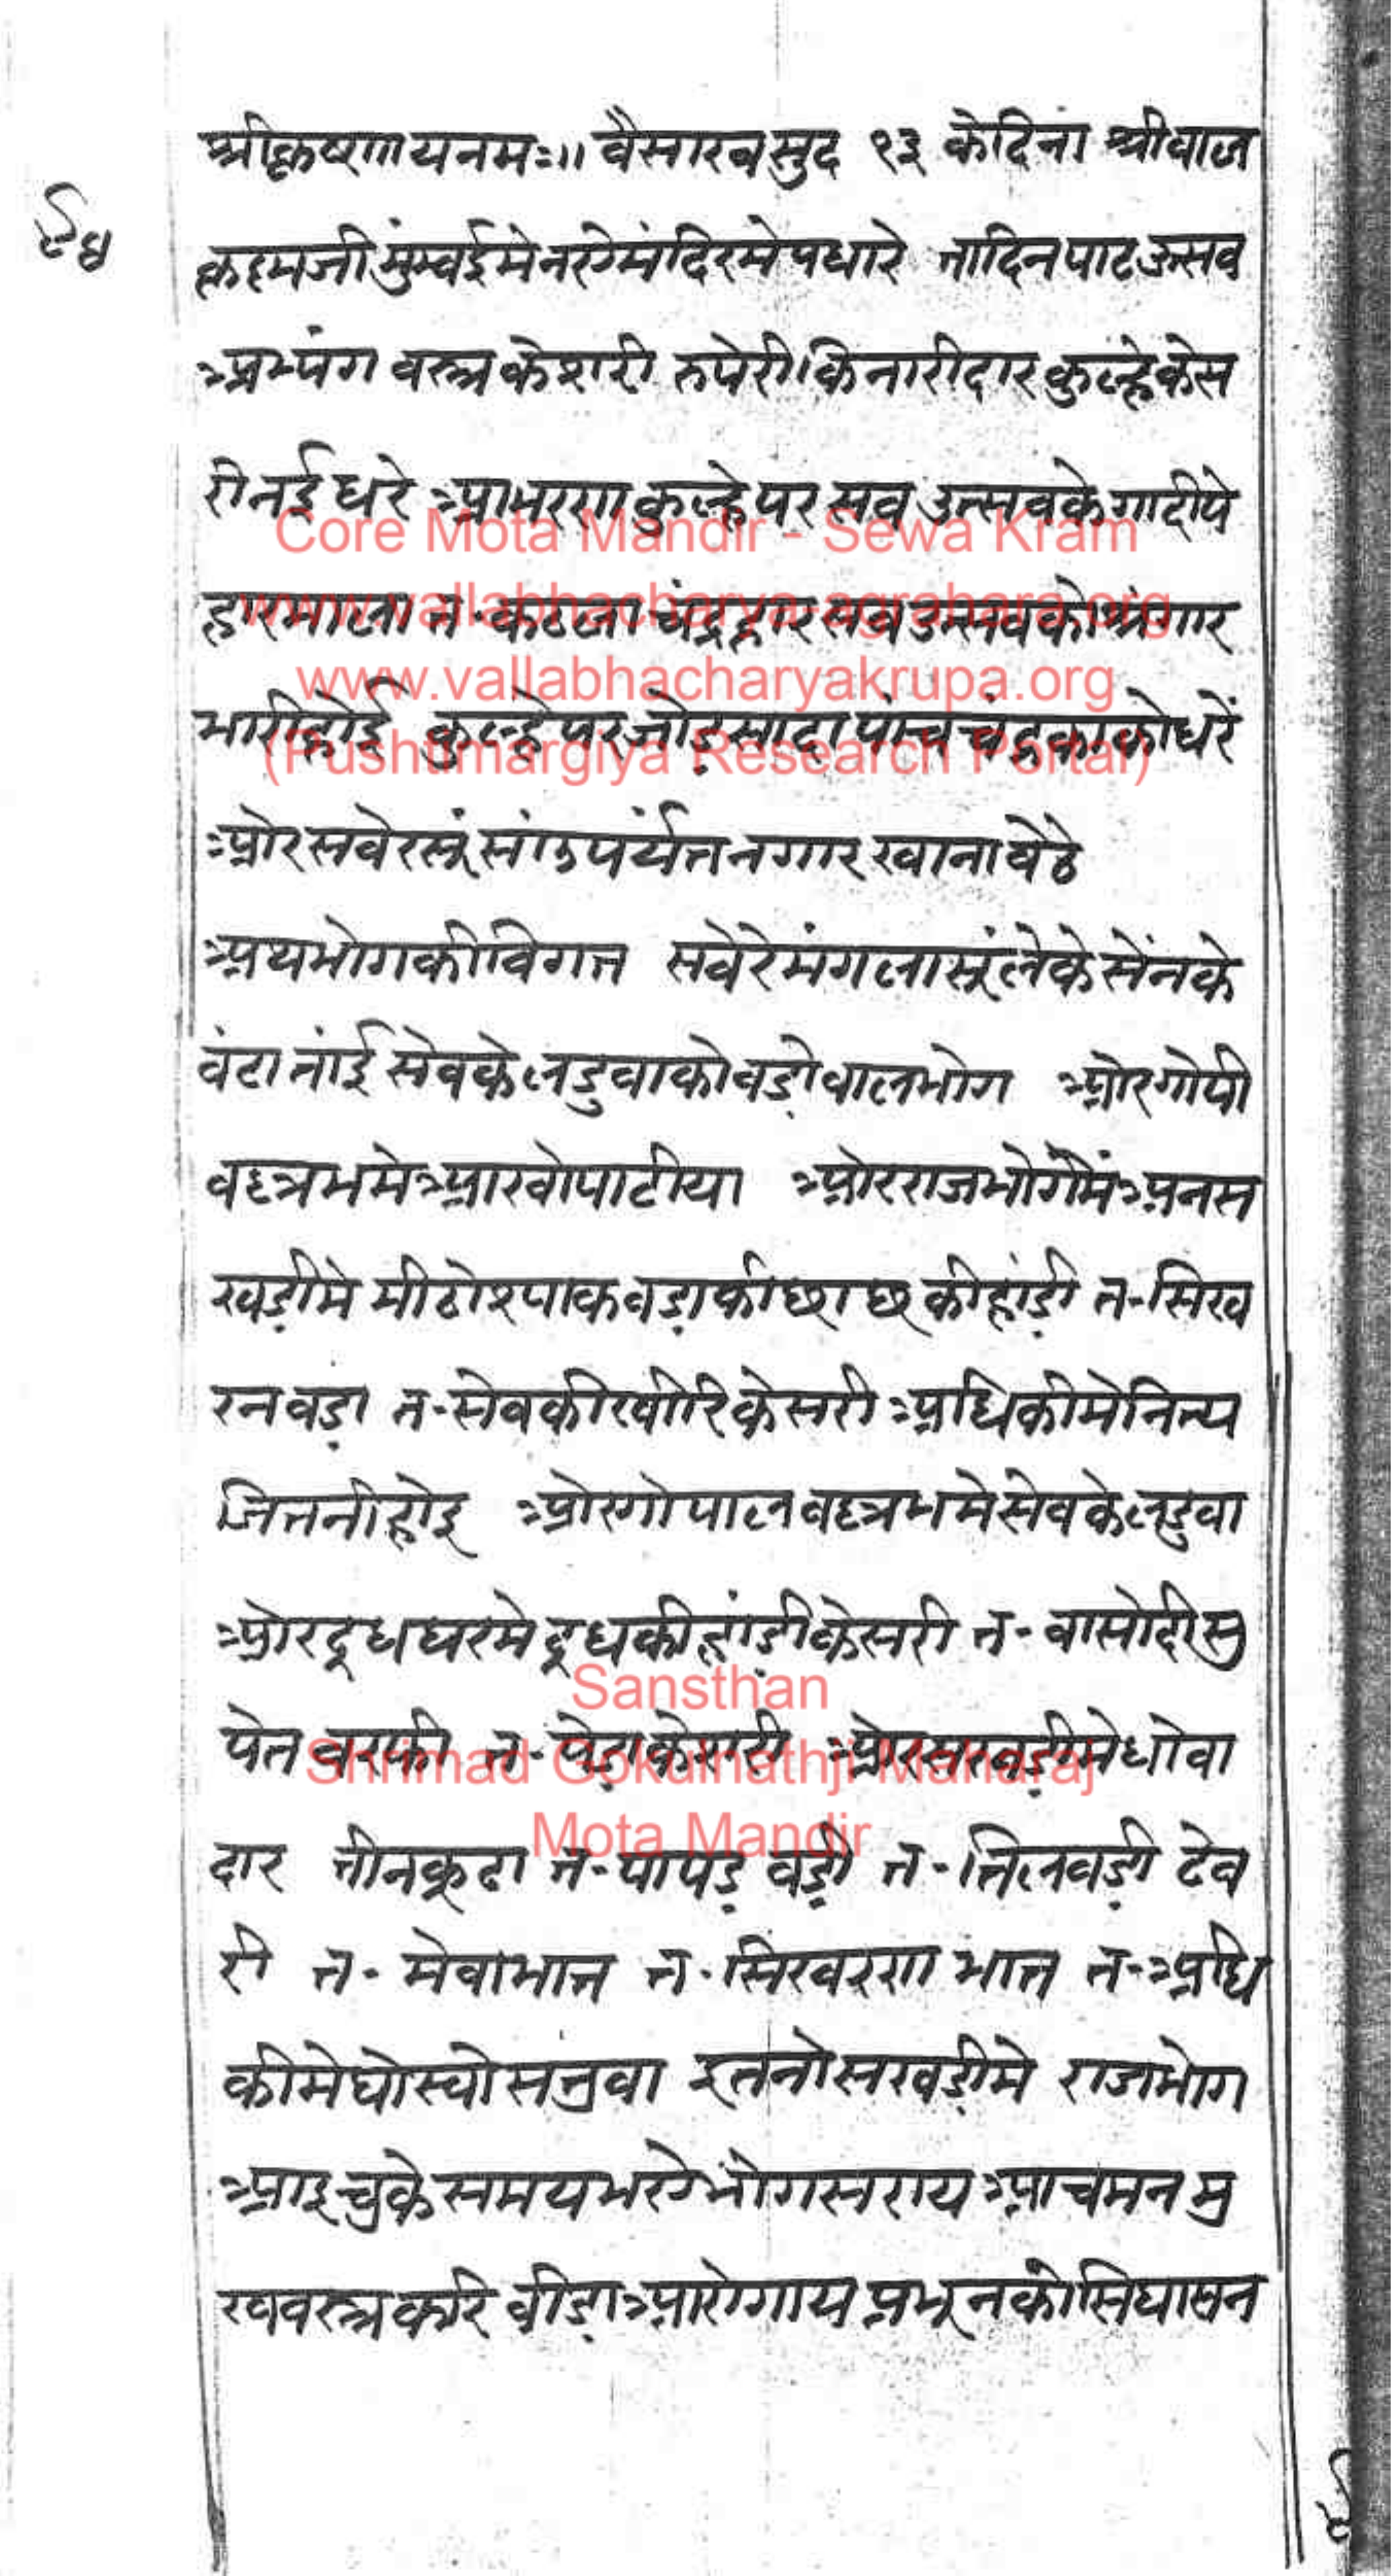 ९४
श्रीकृष्णायनमः॥ वैसाख सुद १३ केदिना श्रीबाल
कृष्णजी मुंम्बईमे नये मंदिरमे पधारे तादिन पाटउत्सव
अभ्यंग वस्त्र केशरी रुपेरी किनारीदार कुल्हे केस
री नई धरे आभरण कुल्हे पर सब उत्सवके गादीपे
हारमाला त॰ कठला चंद्रहार सब उत्सवको श्रृंगार
भारी होई कुल्हे पर जोड़ सादा पांच चंद्रकाको धरें
ओर सवेरसूं सांज पर्यंत नगारखाना बेठे
अथ भोगकी विगत सवेरे मंगलासूं लेके सेंनके
बंटा तांई सेवके लडुवाको बड़ो बालभोग ओर गोपी
वल्लभमे आखो पाटीया ओर राजभोगमें अनस
खड़ीमे मीठो श्पाक बड़ाकी छाछकी हांड़ी त॰ सिख
रन बड़ा त॰ सेवकी खीरि केसरी अधिकीमे नित्य
जितनी होइ ओर गोपालवल्लभमे सेवके लडुवा
ओर दूधघरमे दूधकी हांड़ी केसरी त॰ बासोदी सु
पेत बरफी त॰ पेड़ा केसरी ओर सखड़ीमे धोवा
दार तीनकूढा त॰ पापड़ वड़ी त॰ तिलवड़ी ढेव
री त॰ मेवाभात त॰ सिखरण भात त॰ अधि
कीमे घोस्यो सतुवा इतनो सखड़ीमे राजभोग
आइ चुके समय भये भोग सराय आचमन मु
खवस्त्र करि बीड़ा आरोगाय प्रभूनको सिंघासन
Core Mota Mandir - Sewa Kram
www.vallabhacharya-agrahara.org
www.vallabhacharyakrupa.org
(Pushtimargiya Research Portal)
Sansthan
Shrimad Gokulnathji Maharaj
Mota Mandir